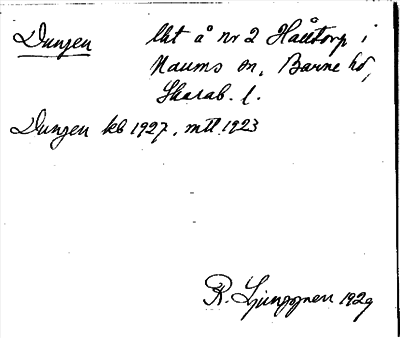 Dungen lht å nr 2 Håltorp i
Naums sn, Barne hd,
Skarab. l.
Dungen kb 1927, mtl 1923
R. Ljunggren 1929